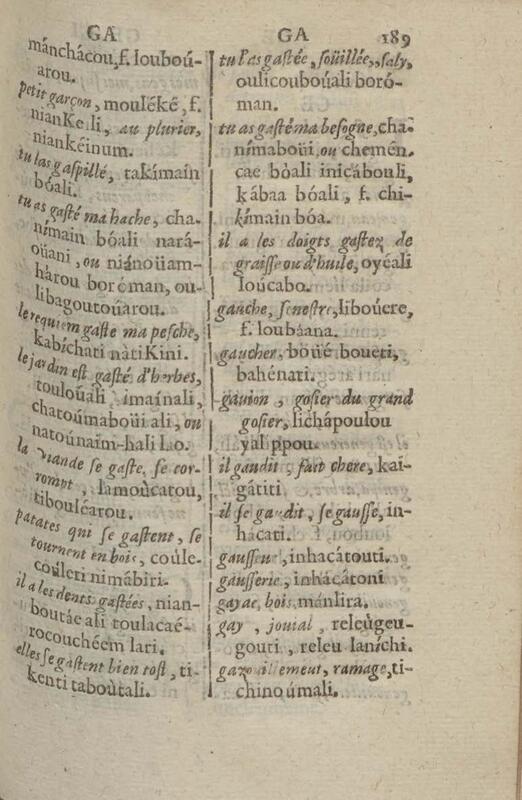 GA
mánchácou, f. louboú-
arou.
petit garçon, mouléké, f.
nianKeili, au plurier,
niankéinum.
tu las gaspillé, takímain
bóali.
tu as gasté ma hache, cha-
nímain bóali nará-
oüani, ou niánoüam-
hárou boróman, ou-
libagoutoúarou.
le requiem gaste ma pesche,
kabíchati nátiKini.
le jardin est gasté d'herbes,
toulouáli imaínali,
chatoúmaboüi ali, ou
natoúnaim-hali
la viande se gaste, se cor-
rompt, lamoùcatou,
tibouléarou.
patates qui se gastent, se
tournent en bois, coúle-
coúleri nimábiri.
il a les dents gastées, nian-
boutáe ali toulacaé-
rocouchéem lari.
elles se gastent bien tost, ti-
kenti taboùtali.
GA
189
tu l'as gastée, soüillée, saly,
oulicouboúali boró-
man.
tu as gasté ma besogne, cha-
nímaboüi, ou chemén-
cae bóali inicábouli,
kábaa bóali, f. chi-
kímain bóa.
il a les doigts gastez de
graisse ou d'huile, oyéali
loúcabo.
gauche, senestre, liboúere,
f. loubáana.
gaucher, boüé boueti,
bahénati.
gauion, gosier du grand
gosier, lichápoulou
yal ppou.
il gaudit, fait chere, kai-
gátiti
il se gaudit, se gausse, in-
hácati.
gausseur, inhacátouti.
gausserie, inhácátoni
gayac, bois, mánlira.
gay, jouial, releugeu-
gouti, releu lanichi.
gazoüillement, ramage, ti-
chino úmali.